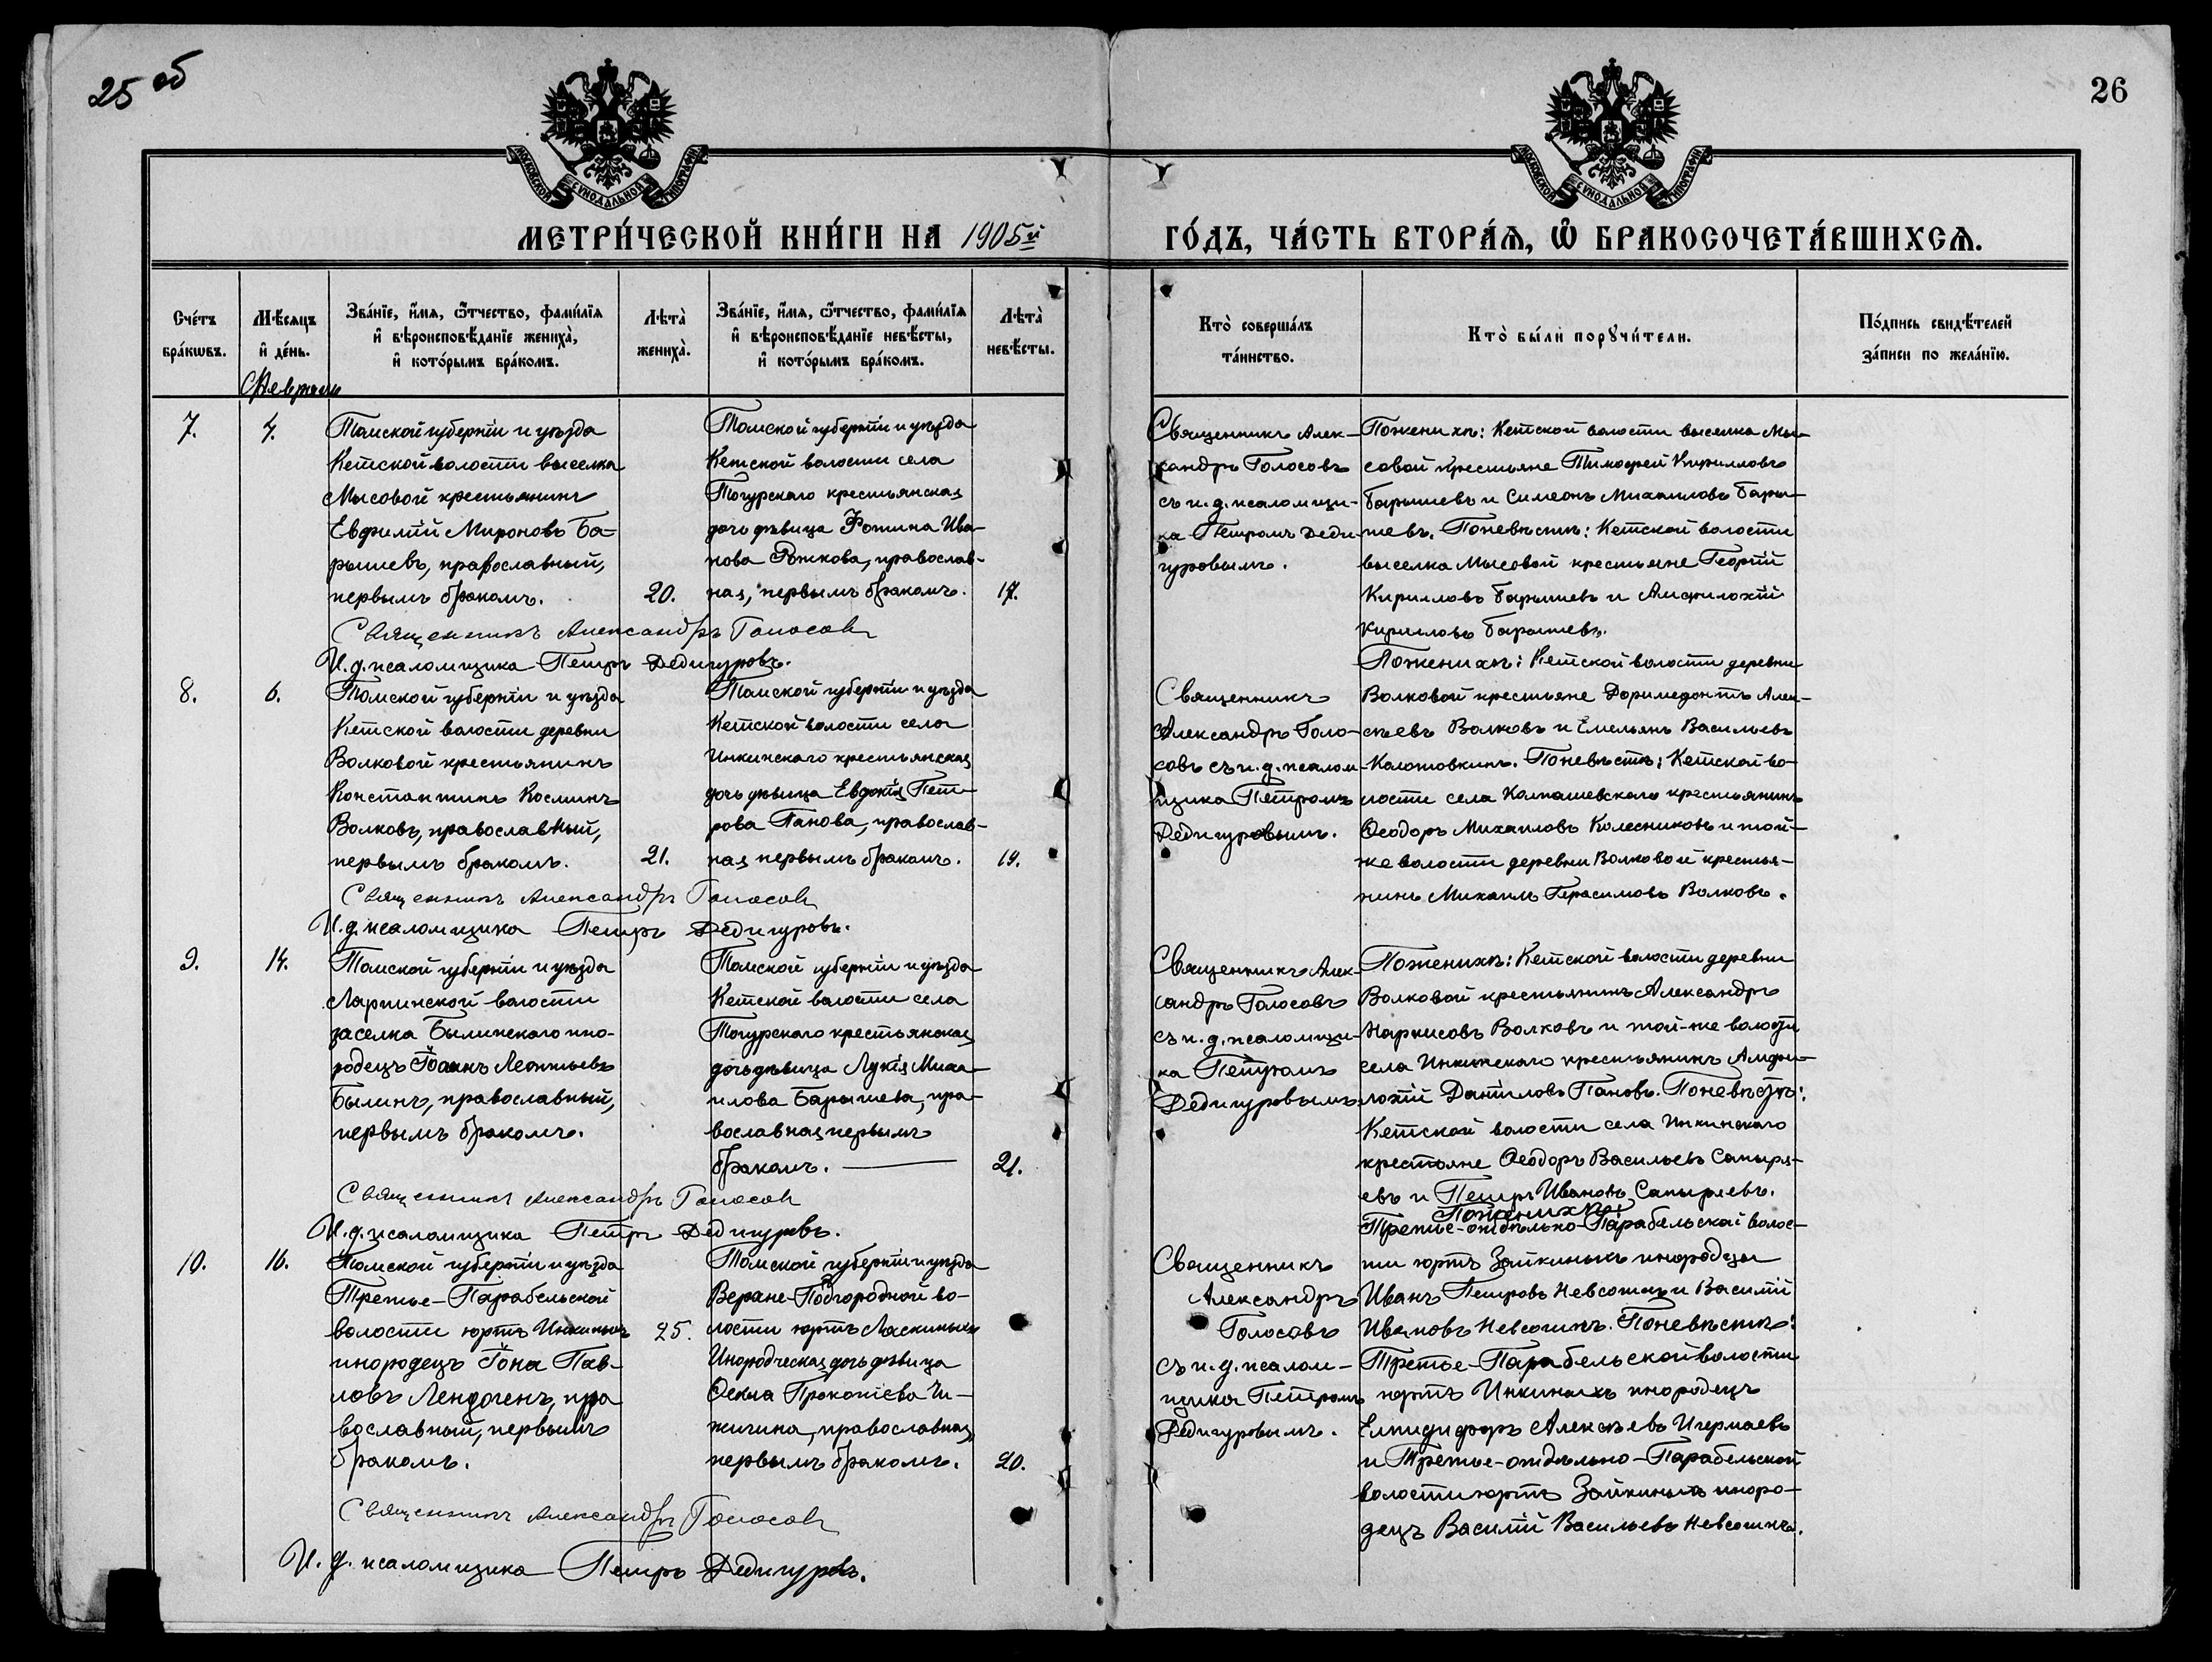 25 об
26
МОСКОВСКОЙ СѴНОДАЛЬНОЙ ТИПОГРАФІИ
МОСКОВСКОЙ СѴНОДАЛЬНОЙ ТИПОГРАФІИ
МЕТРИ́ЧЕСКОЙ КНИ́ГИ НА 1905й
ГО́ДЪ, ЧА́СТЬ ВТОРА́Ѧ, Ѽ БРАКОСОЧЕТА́ВШИХСѦ.
Сче́тъ
бра́кѡвъ.
Мѣ́сяцъ
и҆ де́нь.
Зва́нїе, и҆́мя, ѻ҆́тчество, фами́лїя
и҆ вѣроисповѣ́данїе жениха̀,
и҆ кото́рымъ бра́комъ.
Лѣта̀
жениха̀.
Зва́нїе, и҆́мя, ѻ҆́тчество, фами́лїя
и҆ вѣроисповѣ́данїе невѣ́сты,
и҆ кото́рымъ бра́комъ.
Лѣта̀
невѣ́сты.
Кто̀ соверша́лъ
та́инство.
Кто̀ бы́ли порꙋчи́тели.
По́дпись свидѣ́телей
за́писи по жела́нїю.
Февраль
7.
4.
Томской губерніи и уѣзда
Кетской волости выселка
Мысовой крестьянинъ
Евфимій Мироновъ Ба-
рышевъ, православный,
первымъ бракомъ.
20.
Томской губерніи и уѣзда
Кетской волости села
Тогурскаго крестьянская
дочь дѣвица Фотина Ива-
нова Рожкова, православ-
ная, первымъ бракомъ.
17.
Священникъ Алек-
сандръ Голосовъ
съ и. д. псаломщи-
ка Петромъ Деди-
гуровымъ.
Поженихѣ: Кетской волости выселка Мы-
совой крестьяне Тимофей Кирилловъ
Барышевъ и Симеонъ Михаиловъ Бары-
шевъ. Поневѣстѣ: Кетской волости
выселка Мысовой крестьяне Георгій
Кирилловъ Барышевъ и Амфилохій
Кирилловъ Барышевъ.
Священникъ Александръ Голосовъ
И. д. псаломщика Петръ Дедигуровъ.
8.
6.
Томской губерніи и уѣзда
Кетской волости деревни
Волковой крестьянинъ
Константинъ Косминъ
Волковъ, православный,
первымъ бракомъ.
21.
Томской губерніи и уѣзда
Кетской волости села
Инкинскаго крестьянская
дочь дѣвица Евдокія Пет-
рова Панова, православ-
ная первымъ бракомъ.
19.
Священникъ
Александръ Голо-
совъ съ и. д. псалом-
щика Петромъ
Дедигуровымъ.
Поженихѣ: Кетской волости деревни
Волковой крестьяне Доримедонтъ Алек-
сѣевъ Волковъ и Емельянъ Васильевъ
Колотовкинъ. Поневѣстѣ: Кетской во-
лости села Колпашевскаго крестьянинъ
Ѳеодоръ Михаиловъ Колесниковъ и той-
же волости деревни Волковой крестья-
нинъ Михаилъ Герасимовъ Волковъ.
Священникъ Александръ Голосовъ
И. д. псаломщика Петръ Дедигуровъ.
9.
14.
Томской губерніи и уѣзда
Ларпинской волости
заселка Былинскаго ино-
родецъ Іоаннъ Леонтьевъ
Былинъ, православный,
первымъ бракомъ.
Томской губерніи и уѣзда
Кетской волости села
Тогурскаго крестьянская
дочь дѣвица Лукія Миха-
илова Барышева, пра-
вославная первымъ
бракомъ.
21.
Священникъ Алек-
сандръ Голосовъ
съ и. д. псаломщи-
ка Петромъ
Дедигуровымъ
Поженихѣ: Кетской волости деревни
Волковой крестьянинъ Александръ
Наркисовъ Волковъ и той-же волости
села Инкинскаго крестьянинъ Амфи-
лохій Даніиловъ Пановъ. Поневѣстѣ:
Кетской волости села Инкинскаго
крестьяне Ѳеодоръ Васильевъ Сапыря-
евъ и Петръ Ивановъ Сапыряевъ.
Священникъ Александръ Голосовъ
И. д. псаломщика Петръ Дедигуровъ.
10.
16.
Томской губерніи и уѣзда
Третье-Парабельской
волости юртъ Инкиныхъ
инородецъ Іона Пав-
ловъ Лендогенъ, пра
вославный, первымъ
бракомъ.
25.
Томской губерніи и уѣзда
Верхне-Подгородной во-
лости юртъ Ласкиныхъ
Инородческая дочь дѣвица
Ѳекла Прокопіева Чи-
жичина, православная
первымъ бракомъ.
20.
Священникъ
Александръ
Голосовъ
съ и. д. псалом-
щика Петромъ
Дедигуровымъ.
Поженихѣ:
Третье-отдѣльно-Парабельской волос-
ти юртъ Зайкиныхъ инородцы
Иванъ Петровъ Невсотинъ и Василій
Ивановъ Невсотинъ. Поневѣстѣ:
Третье-Парабельской волости
юртъ Инкиныхъ инородецъ
Елпидифоръ Алексѣевъ Ичермаевъ
и Третье-отдѣльно-Парабельской
волости юртъ Зайкиныхъ иноро-
децъ Василій Васильевъ Невсотинъ.
Священникъ Александръ Голосовъ
И. д. псаломщика Петръ Дедигуровъ.